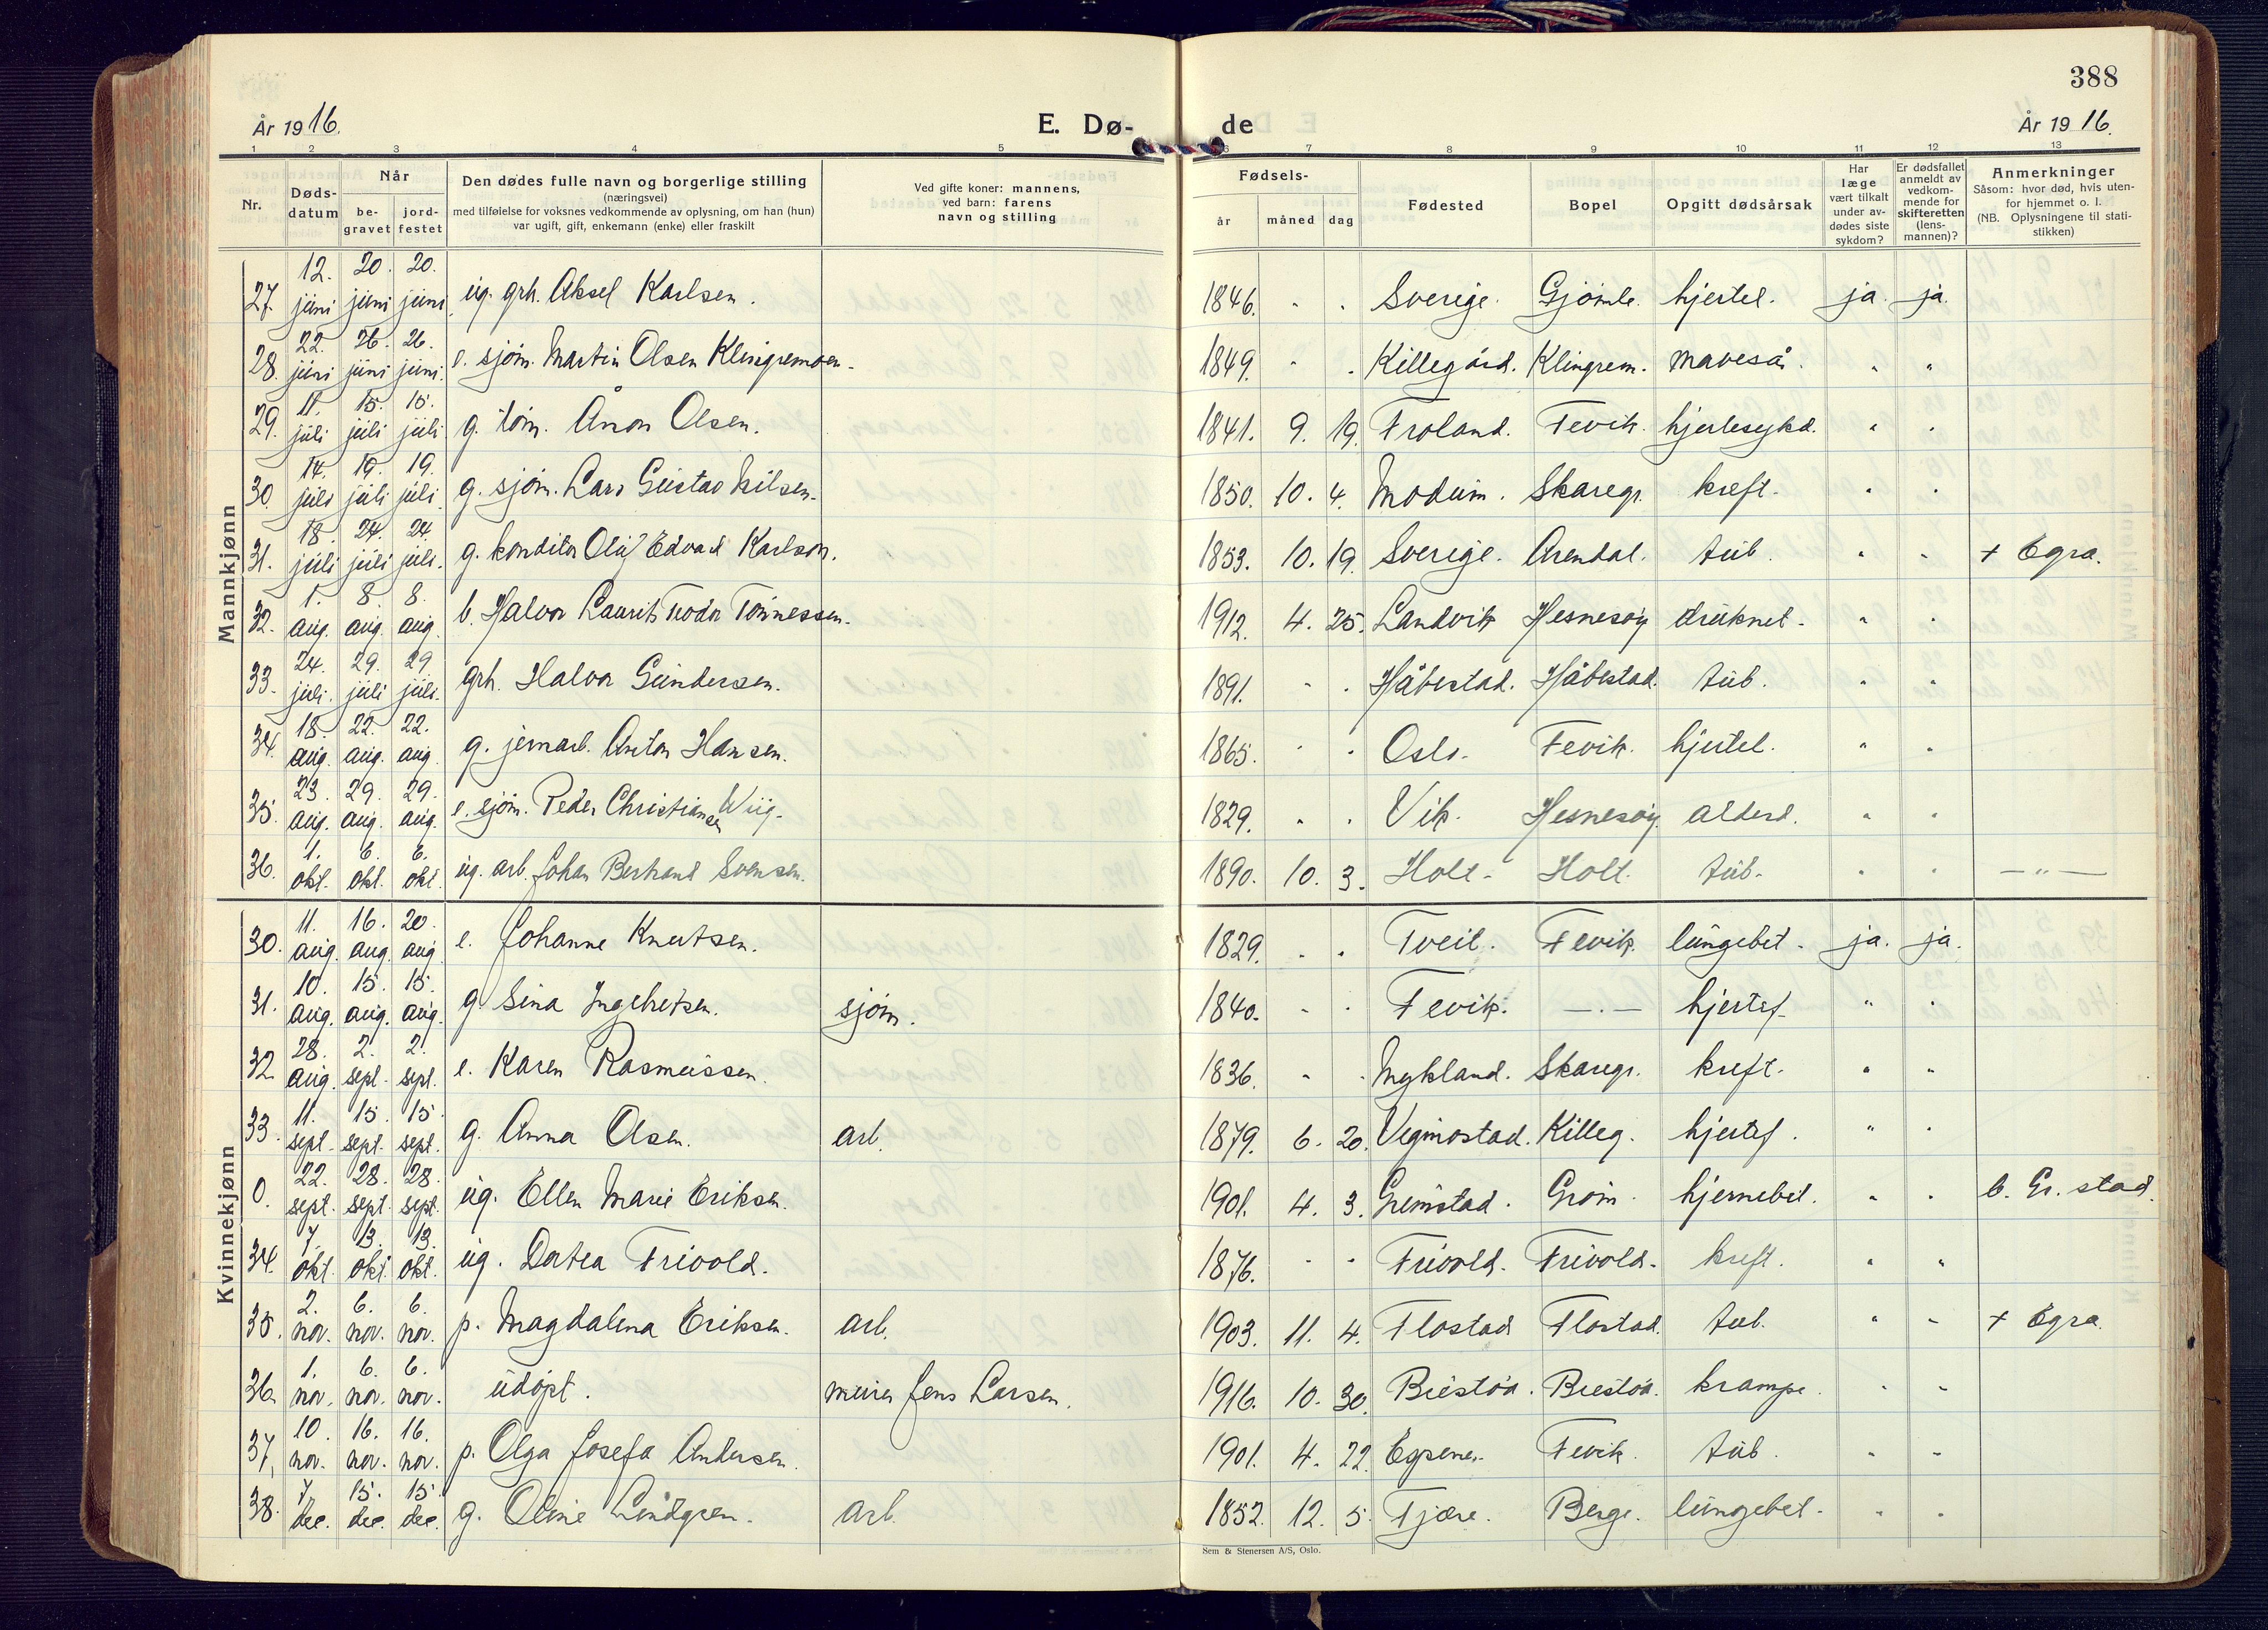 388
År 1916.
E. Dø-de
År 1916.
1 2 3 4 5 6 7 8 9 10 11 12 13
Nr.
Døds-datum
Når
be-gravet
jord-festet
Den dødes fulle navn og borgerlige stilling
(næringsvei)
med tilføielse for voksnes vedkommende av oplysning, om han (hun)
var ugift, gift, enkemann (enke) eller fraskilt
Ved gifte koner: mannens,
ved barn: farens
navn og stilling
Fødsels-
år
måned
dag
Fødested
Bopel
Opgitt dødsårsak
Har læge vært tilkalt under av-dødes siste sykdom?
Er dødsfallet anmeldt av vedkom-mende for skifteretten (lens-mannen)?
Anmerkninger
Såsom: hvor død, hvis uten-
for hjemmet o. l.
(NB. Oplysningene til stati-
stikken)
Mannkjønn
27. 12. juni 20. juni 20. juni ug. grh. Aksel Karlsen. 1846. - . Sverige. Gjömle. hjertel. ja. ja.
28. 22. juni 26. juni 26. juni. e. sjøm. Martin Olsen Klingremoen. 1849. - . Killegård. Klingrem. mavesår. " "
29. 11. juli 15. juli 15. juli g. töm. Ånon Olsen. 1841. 9. 19. Froland. Fevik. hjertesykd. " "
30. 14. juli 19. juli 19. juli g. sjöm. Lars Gustav Nilsen. 1850. 10. 4. Modum. Skaregr. kreft. " "
31. 18. juli 24. juli 24. juli. g. konditor Oluf Edvard Karlson. 1853. 10. 19. Sverige. Arendal. tub. " " + Egra.
32. 1. aug. 8. aug. 8. aug. b. Halvor Laurits Tönnessen. 1912. 4. 25. Landvik Hesnesöy druknet. " "
33. 24. juli. 29. juli 29 juli. grh. Halvor Gundersen. 1891. - . Håbestad. Håbestad. tub. " "
34. 18. aug. 22. aug. 22. aug. g. jernarb. Anton Hansen. 1865. - . Oslo. Fevik. hjertel. " "
35. 23. aug. 29. aug. 29. aug. e. sjöm. Peder Christiansen Wiig. 1829. - . Vik. Hesnesöy. alderd. " "
36. 1. okt. 6. okt. 6. okt. ug. arb. Johan Bertrand Svensen. 1890. 10. 3. Holt. Holt. tub. " " — " —
Kvinnekjønn
30. 11. aug. 16. aug. 20. aug. e. Johanne Knutsen. 1829. - . Tveit. Fevik. lungebet. ja. ja.
31. 10. aug. 15. aug. 15. aug. g. Sina Ingebretsen. sjöm. 1840. - . Fevik. — . — hjertef. " "
32. 28. aug. 2. sept. 2. sept. e. Karen Rasmussen. 1836. - . Mykland. Skaregr. kreft. " "
33. 11. sept. 15. sept. 15. sept. g. Anna Olsen. arb. 1879. 6. 20. Vigmostad. Killeg. hjertef. " "
0. 22. sept. 28. sept. 28. sept. ug. Ellen Marie Eriksen. 1901. 4. 3. Grimstad. Gröm. hjernebet. " " b. Gr. stad.
34. 7. okt. 13. okt. 13. okt. ug. Datea Frivold. 1876. - . Frivold. Frivold. kreft. " "
35. 2. nov. 6. nov. 6. nov. p. Magdalena Eriksen. arb. 1903. 11. 4. Flostad Flostad. tub. " " + Egra.
36. 1. nov. 6. nov. 6. nov. udöpt. murer Jens Larsen. 1916. 10. 30. krampe. " "
37. 10. nov. 16. nov. 16. nov. p. Olga Josefa Andersen. 1901. 4. 22. Fevik. tub. " "
38. 7. dec. 15. dec. 15. dec. g. Oline Lindgren. arb. 1852. 12. 5. Fjære. Berge. lungebet. " "
Sem & Stenersen A/S, Oslo.